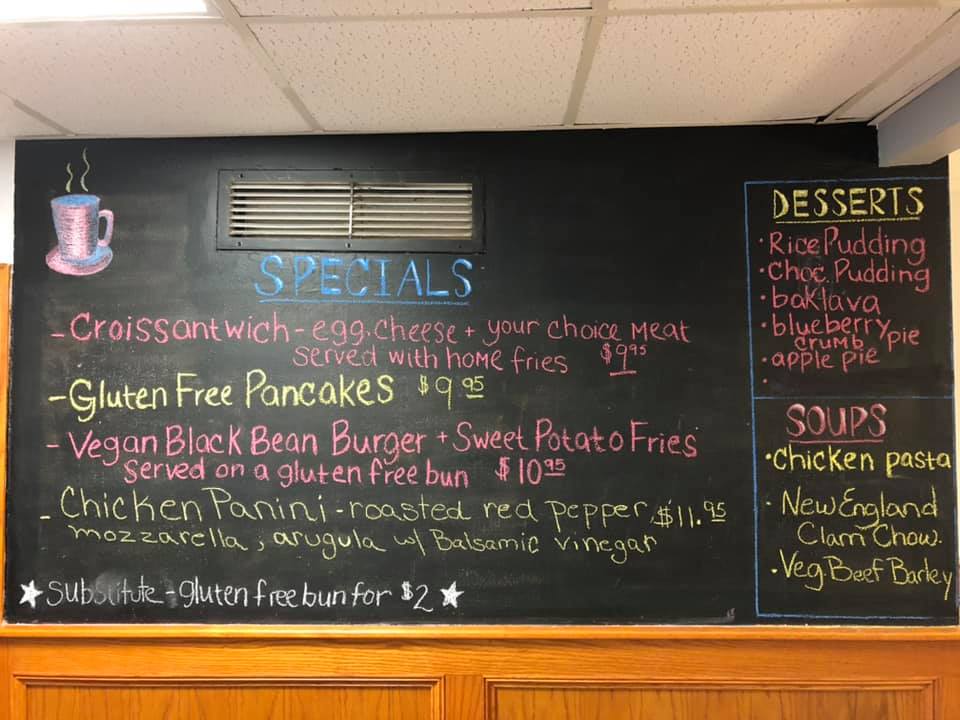 SPECIALS
- Croissantwich - egg, cheese + your choice meat
served with home fries $9.95
- Gluten Free Pancakes $9.95
- Vegan Black Bean Burger + Sweet Potato Fries
served on a gluten free bun $10.95
- Chicken Panini - roasted red pepper, $11.95
mozzarella, arugula w/ Balsamic vinegar
★ Substitute - gluten free bun for $2 ★
DESSERTS
· Rice Pudding
· Choc. Pudding
· baklava
· blueberry
crumb pie
· apple pie
·
SOUPS
· Chicken pasta
· New England
Clam Chow.
· Veg. Beef Barley